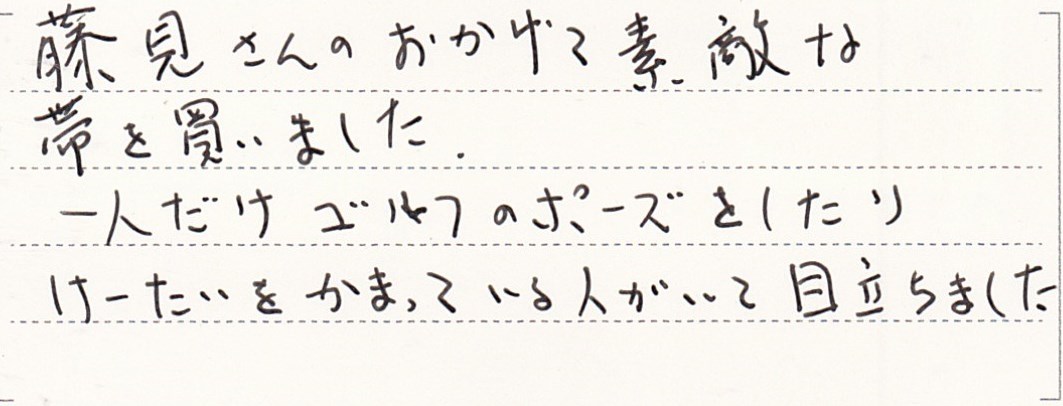 藤見さんのおかげで素敵な
帯を買いました.
一人だけゴルフのポーズをしたり
けーたいをかまっている人がいて目立ちました